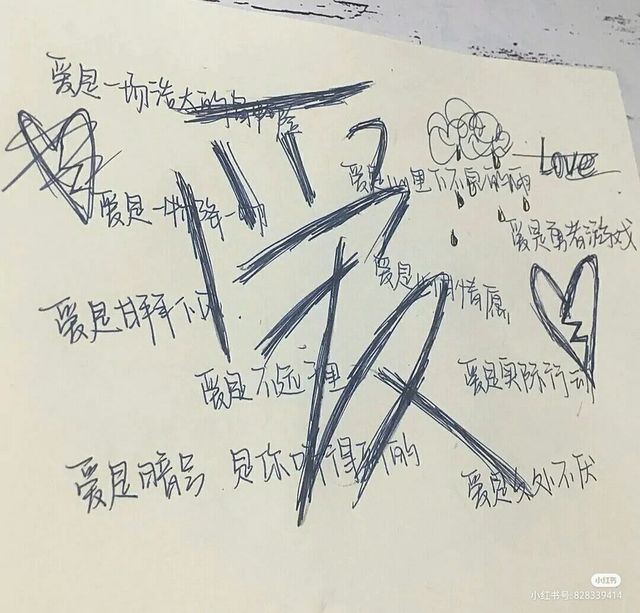 爱是一场浩大的自卑
爱是一物降一物
爱是心里下不完的雨
Love
爱是勇者游戏
爱
爱是心甘情愿
爱是甘拜下风
爱是不远千里
爱是实际行动
爱是暗号 是你听得到的
爱是久处不厌
小红书
小红书号:828339414